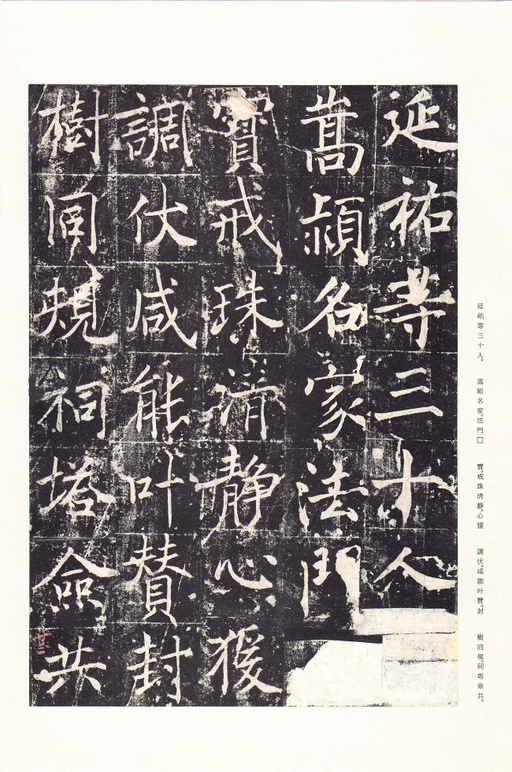 延祐等三十人
嵩潁名家法門
寶戒珠清靜心猨
調伏咸能叶贊封
樹同規祠塔僉共
延祐等三十人。 嵩潁名家。法門□ 寶。戒珠清靜。心猨 調伏。咸能叶贊。封 樹同規。祠塔僉共。